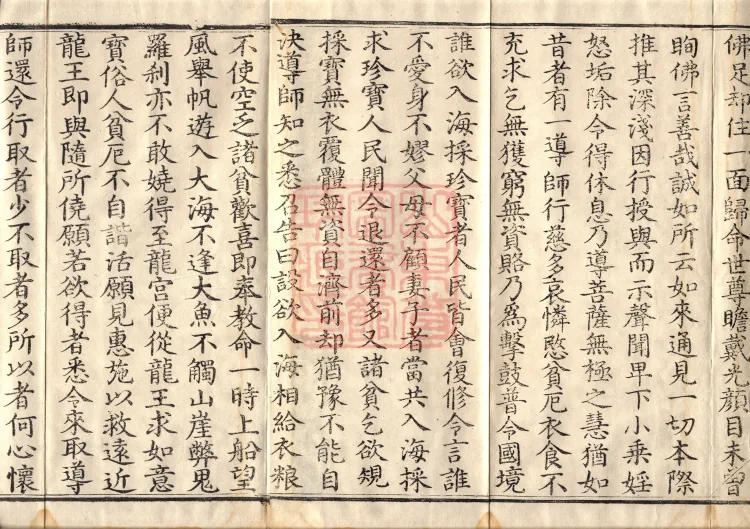 佛足却住一面歸命世尊瞻戴光顏目未曾
眴佛言善哉誠如所云如來通見一切本際
推其深淺因行授與而示聲聞早下小乘婬
怒垢除令得休息乃導菩薩無極之慧猶如
昔者有一導師行慈多哀憐愍貧厄衣食不
充求乞無獲窮無資賂乃爲擊鼓普令國境
誰欲入海採珍寶者人民皆會復修令言誰
不愛身不嫪父母不顧妻子者當共入海採
求珍寶人民聞令退還者多又諸貧乞欲規
採寶無衣覆體無資自濟前却猶豫不能自
決導師知之悉召告曰設欲入海相給衣粮
不使空乏諸貧歡喜即奉教命一時上船望
風舉帆遊入大海不逢大魚不觸山崖弊鬼
羅刹亦不敢嬈得至龍宮便從龍王求如意
寶俗人貧厄不自諧活願見惠施以救遠近
龍王即與隨所僥願若欲得者悉令來取導
師還令行取者少不取者多所以者何心懷